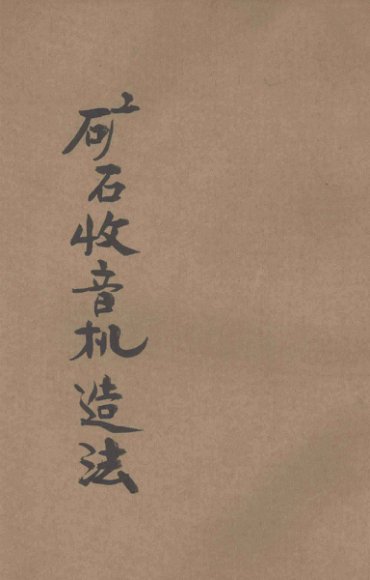 矿石收音机造法